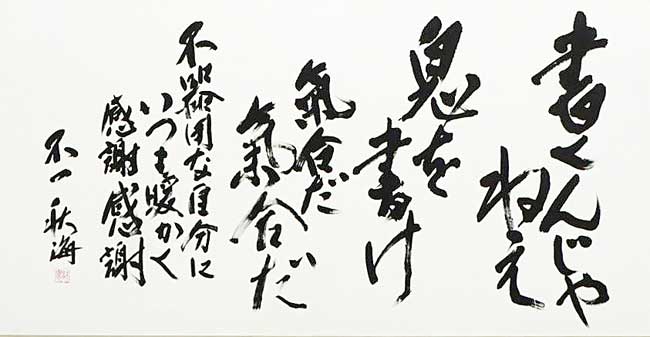 書くんじゃ
ねえ
鬼を
書け
氣合だ
氣合だ
不器用な自分に
いつも暖かく
感謝感謝
不一 秋海